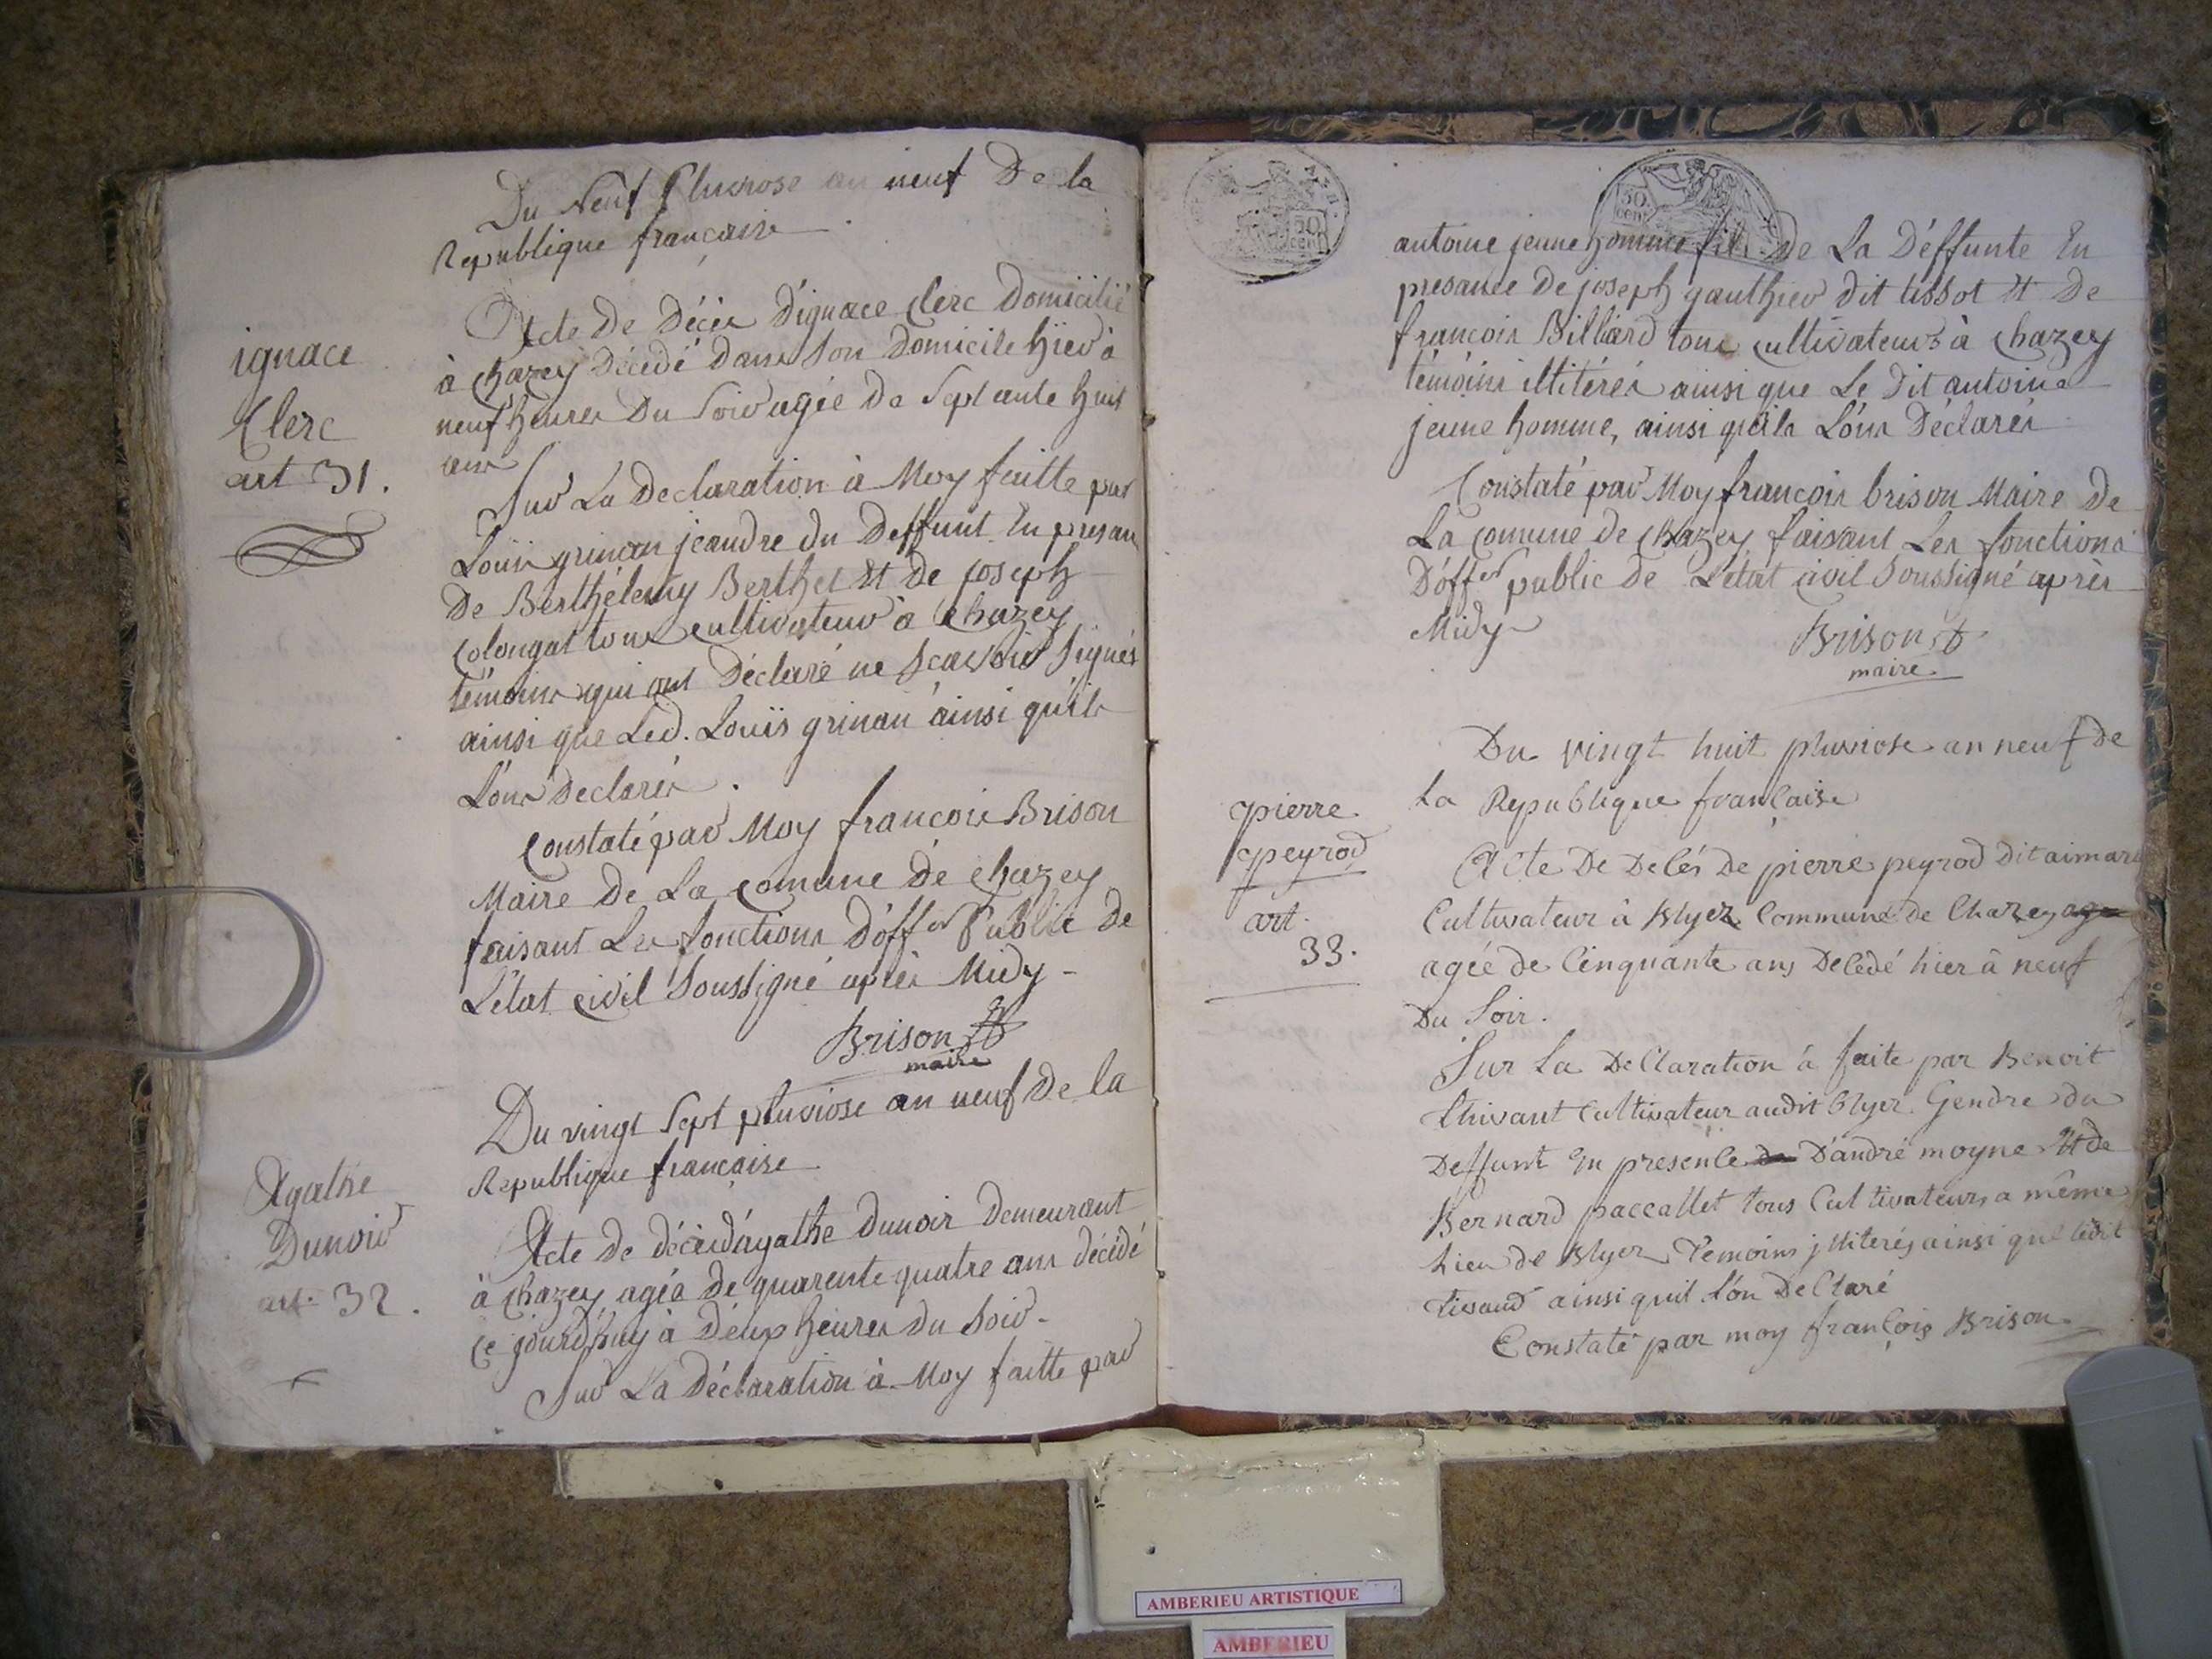 Du Neuf Pluviose an neuf De la
Republique francaise
ignace
Clerc
art 31.
Acte De Décès D'ignace Clerc Domicilié
à Chazey Décédé dans Son Domicile hier à
neuf heures Du Soir agée De Septante huit
ans
Sur La Declaration à Moy faitte par
Loüis grinan jeandre du Deffunt En presan
De Berthélemy Berthet Et de joseph
Colongat tous cultivateur à Chazey
témoins qui ont Déclaré ne Scavoir Signés
ainsi que Led. Loüis grinan ainsi qu'ils
L'ons Declarés.
Constaté par Moy francois Brison
Maire De La Comune de Chazey
faisant Les fonctions D'offer Public De
L'état Civil Soussigné après Midy -
Brison
maire
Du vingt Sept pluviose an neuf De la
Republique française
Agathe
Dunoir
art. 32.
Acte de décès d'agathe Dunoir Demeurant
à Chazey agée De quarente quatre ans décédé
Ce jourd'huy à Deux heures du Soir -
Sur La Déclaration à Moy faitte par
50
cent
50
cent
antoine jeune homme fils De La Déffunte En
presance De joseph gauthier dit tissot Et De
francois Billiard tous cultivateurs à Chazey
témoins illitérés ainsi que Le Dit antoine
jeune homme, ainsi qu'ils L'ons Déclarés
Constaté par Moy francois brison Maire De
La Comune de Chazey faisant Les fonctions
D'offer public de L'état Civil Soussigné après
Midy
Brison
maire.
Du vingt huit pluviose an neuf de
La Republique française
pierre
peyrod
art.
33.
Acte De Decés De pierre peyrod Dit aimard
Cultivateur à Blyez Commune de Chazey age
agée de Cinquante ans Decedé hier à neuf
Du Soir.
Sur La DeClaration à faite par Benoit
thivant Cultivateur audit Blyez Gendre du
Deffunt En presence de D'andré moyne Et de
Bernard paccallet tous Cultivateurs a même
Lieu de Blyez Temoins jllitérés ainsi que ledit
tivaud ainsi quil L'on DeClaré
Constaté par moy françois Brison
AMBERIEU ARTISTIQUE
AMBERIEU